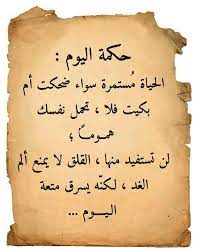 حكمة اليوم :
الحياة مُستمرة سواء ضحكت أم
بكيت فلا ، تحمل نفسك
هموماً ؛
لن تستفيد منها ، القلق لا يمنع ألم
الغد ، لكنّه يسرق متعة
اليوم ...